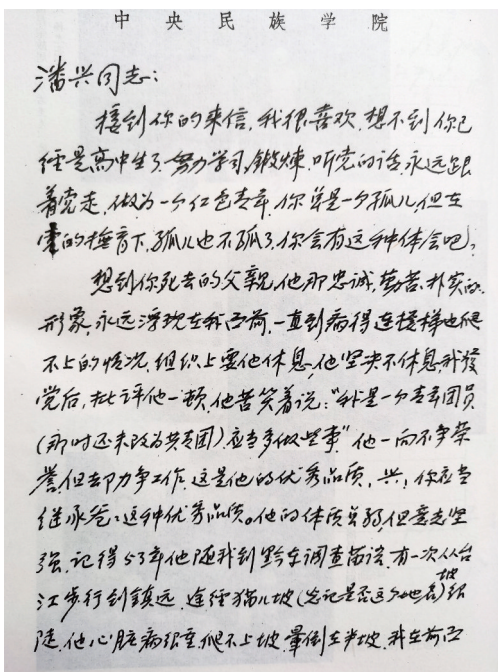 中央民族学院
潘兴同志：
接到你的来信，我很喜欢，想不到你已
经是高中生了，努力学习，锻炼，听党的话，永远跟
着党走，做为一个红色青年，你算是一个孤儿，但在
党的抚育下，孤儿也不孤了，你会有这种体会吧，
想到你死去的父亲，他那忠诚，勤苦，朴实的
形象，永远浮现在我面前，一直到病得连楼梯也爬
不上的情况，组织上要他休息，他坚决不休息，我发
觉后，批评他一顿，他苦笑着说："我是一个青年团员
(那时还未改为共青团)应当多做些事"他一向不争荣
誉，但却力争工作，这是他的优秀品质，兴，你应当
继承爸爸这种优秀品质。他的体质虽弱，但意志坚
强，记得53年他随我到黔东调查苗语，有一次从台
江步行到镇远，途经猫儿坡(忘记是否这个地名)坡很
陡，他心脏病很重，爬不上坡，晕倒在半坡，我在前面